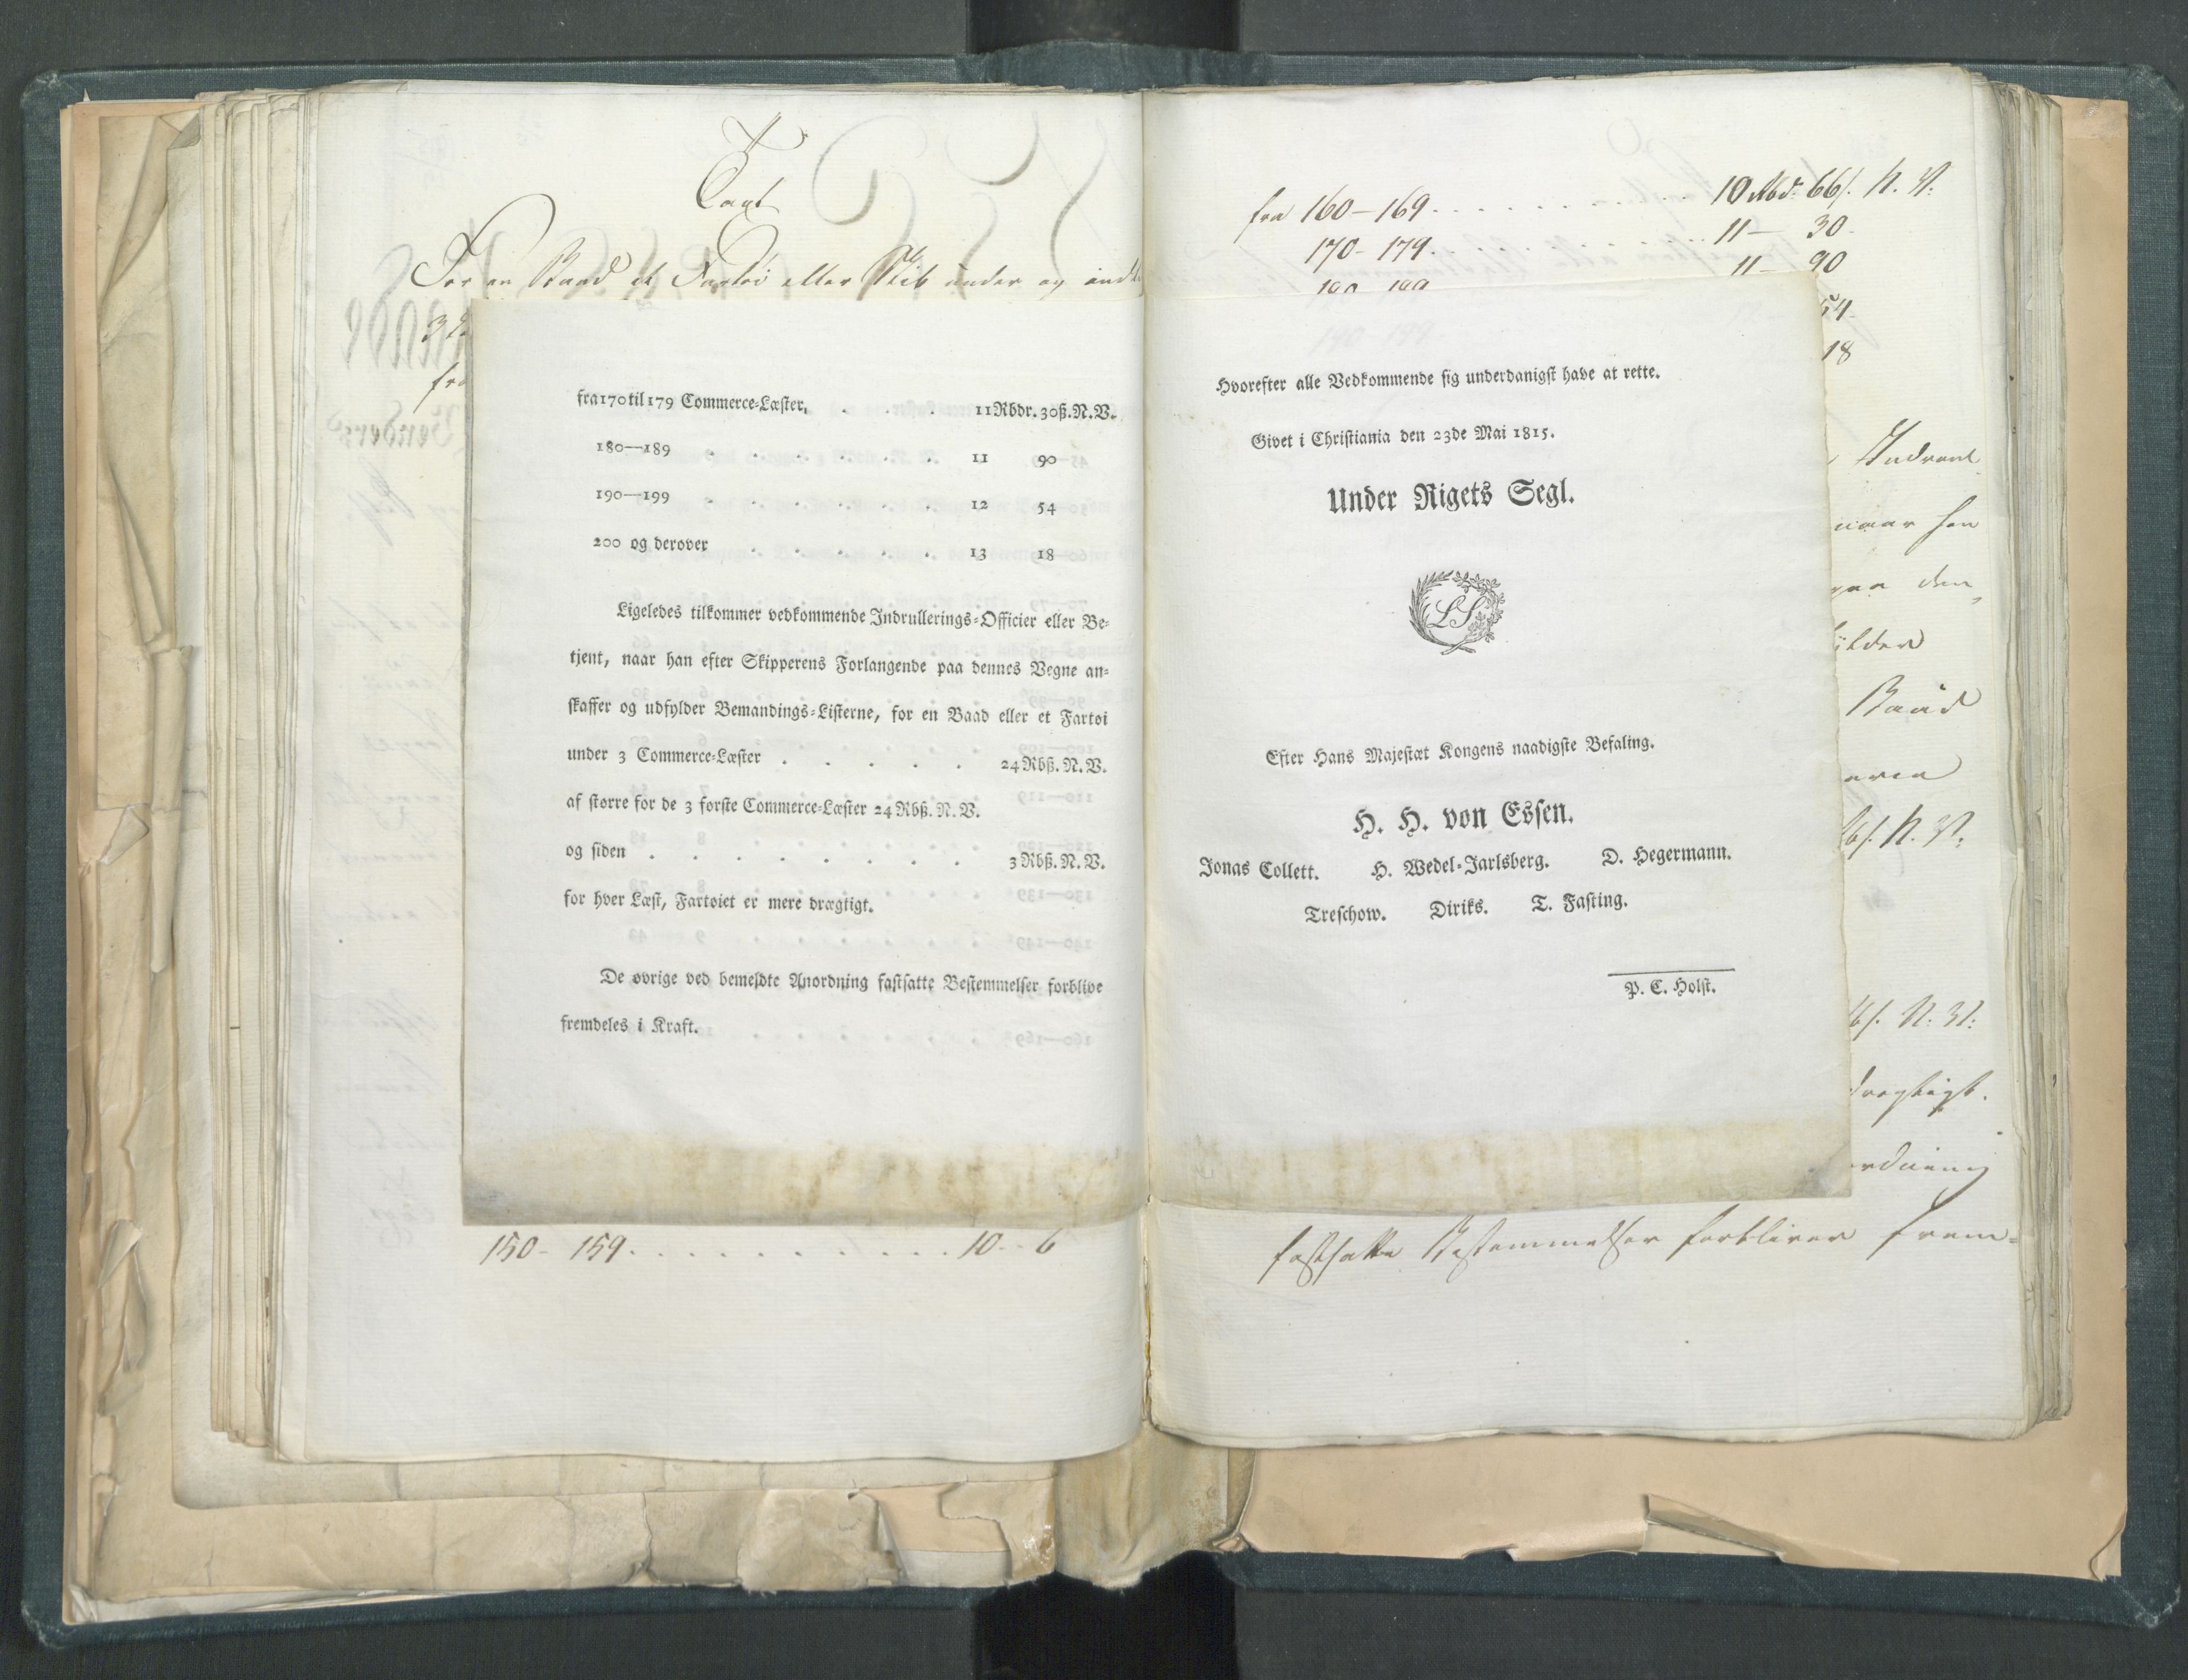 Taxt
For en Baad et Fartöi eller Skib under og indtil
fra 170 til 179 Commerce-Læster, . . . . 11 Rbdr. 30 ß. N. V.
180—189 . . . . . . 11 90
190—199 . . . . . . 12 54
200 og derover . . . . . 13 18
Ligeledes tilkommer vedkommende Indrullerings-Officier eller Be-
tjent, naar han efter Skipperens Forlangende paa dennes Vegne an-
skaffer og udfylder Bemandings-Listerne, for en Baad eller et Fartøi
under 3 Commerce-Læster . . . . . 24 Rbß. N. V.
af større for de 3 første Commerce-Læster 24 Rbß. N. V.
og siden . . . . . . . . 3 Rbß. N. V.
for hver Læst, Fartøiet er mere drægtigt.
De øvrige ved bemeldte Anordning fastsatte Bestemmelser forblive
fremdeles i Kraft.
150 - 159 . . . . . . . . . . 10 - 6
fra 160 - 169 . . . . . . . 10 Rbd: 66 s. N. V:
170 - 179 . . . . . . 11 — 30
11 — 90
54
18
Hvorefter alle Vedkommende sig underdanigst have at rette.
Givet i Christiania den 23de Mai 1815.
Under Rigets Segl.
LS
Efter Hans Majestæt Kongens naadigste Befaling.
H. H. von Essen.
Jonas Collett. H. Wedel-Jarlsberg. D. Hegermann.
Treschow. Diriks. T. Fasting.
P. C. Holst.
naar han
paa den
Baad
N. V:
N: V:
drægtigt.
fastsatte Bestemmelser forbliver frem-